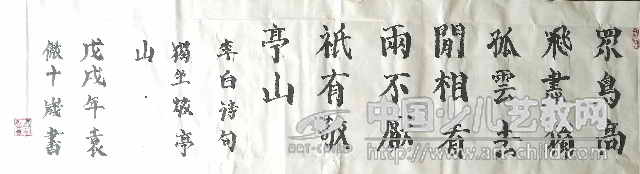 眾鳥高
飛盡
孤雲去
閒相看
兩不厭
祇有敬
亭山
李白诗句
獨坐敬亭
山
戊戌年袁
十歲書
中国少儿艺教网
ART-CHILD
http://www.art-child.com